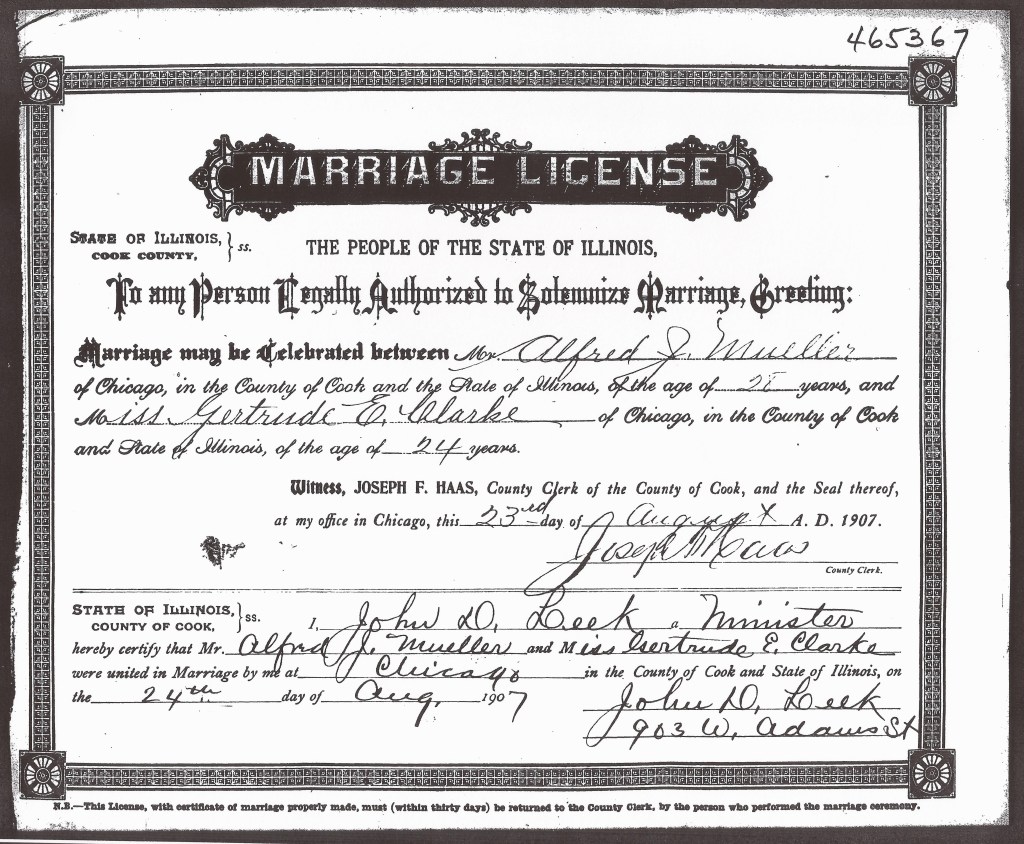 465367
MARRIAGE LICENSE
STATE OF ILLINOIS, } ss.
COOK COUNTY,
THE PEOPLE OF THE STATE OF ILLINOIS,
To any Person Legally Authorized to Solemnize Marriage, Greeting:
Marriage may be Celebrated between Mr. Alfred J. Mueller
of Chicago, in the County of Cook and the State of Illinois, of the age of years, and
Miss Gertrude E. Clarke of Chicago, in the County of Cook
and State of Illinois, of the age of 24 years.
Witness, JOSEPH F. HAAS, County Clerk of the County of Cook, and the Seal thereof,
at my office in Chicago, this 23rd day of August A. D. 1907.
Joseph F Haas
County Clerk.
STATE OF ILLINOIS, } ss.
COUNTY OF COOK,
I, John D. Leek a Minister
hereby certify that Mr. Alfred J. Mueller and Miss Gertrude E. Clarke
were united in Marriage by me at Chicago in the County of Cook and State of Illinois, on
the 24th day of Aug. 1907
John D. Leek
903 W. Adams St
N.B.—This License, with certificate of marriage properly made, must (within thirty days) be returned to the County Clerk, by the person who performed the marriage ceremony.